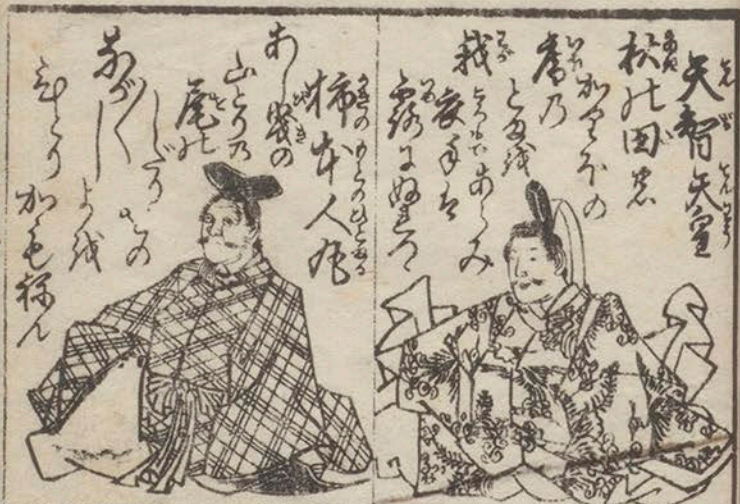 天智天皇
秋の田の
かりほの
庵の
とまを
あらみ
我
衣手は
露にぬれつゝ
柿本人丸
あし曳の
山とりの
尾の
しだり
をの
なが〳〵し
よを
ひとり
かもねん